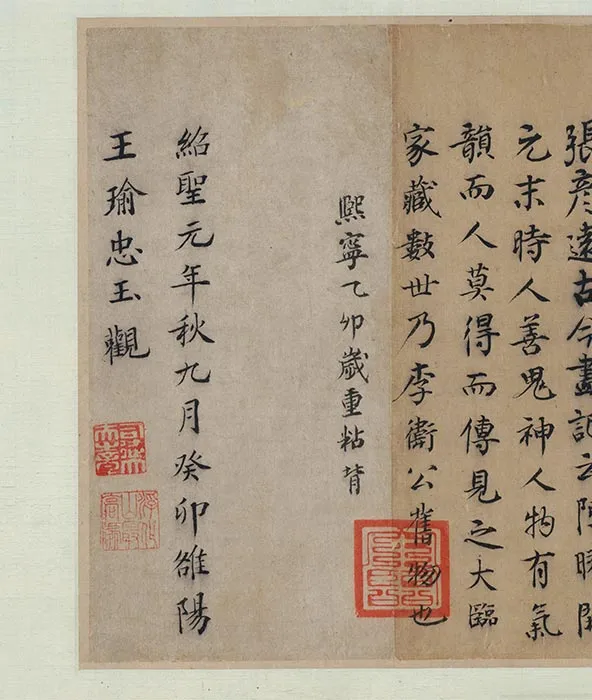 張彥遠古今畫記云
元末時人善鬼神人物有氣
韻而人莫得而傳見之大臨
家藏數世乃李衛公舊物也
熈寧乙卯歲重粘背
紹聖元年秋九月癸卯雒陽
王瑜忠玉觀